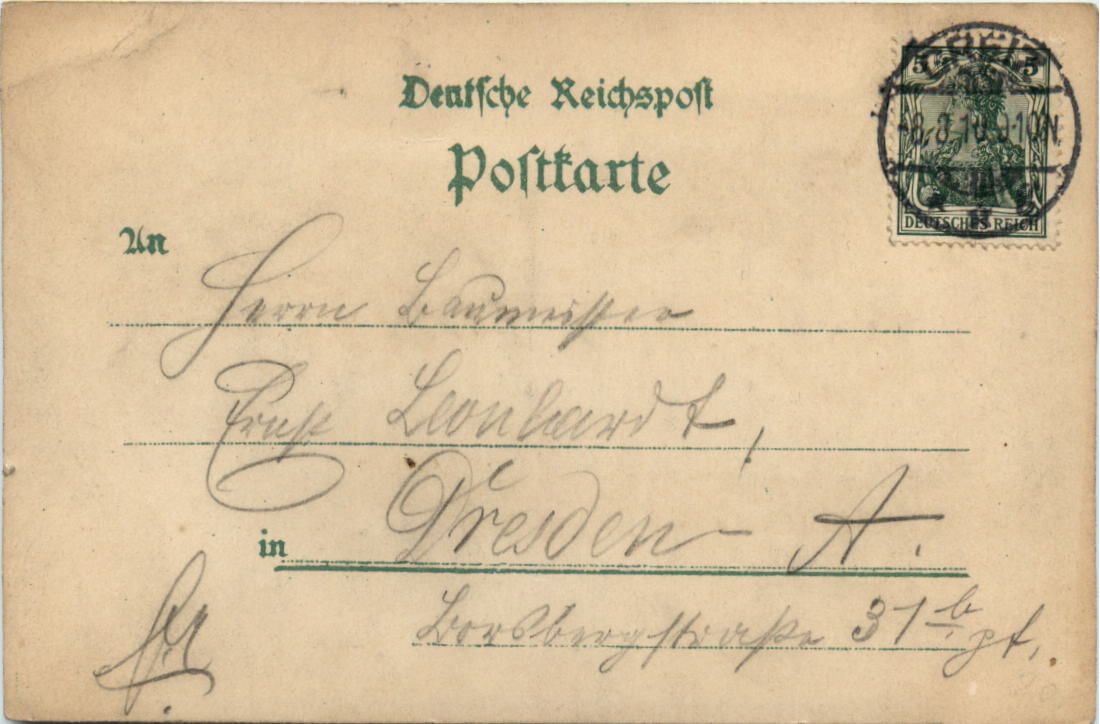 Deutsche Reichspost
Postkarte
5 5
8.3.10. 9-10N.
DEUTSCHES REICH
An
Herrn Baumeister
Ernst Leonhardt,
in Dresden - A.
Borsbergstraße 31 b pt.